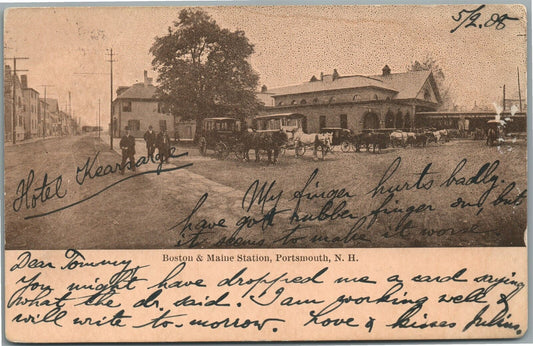 5/2.08
Hotel Kearsarge
My finger hurts badly.
have got rubber finger on, but
it seems to make it worse
Boston & Maine Station, Portsmouth, N. H.
Dear Tommy
You might have dropped me a card saying
what the dr. said. I am working well &
will write to-morrow. Love & kisses